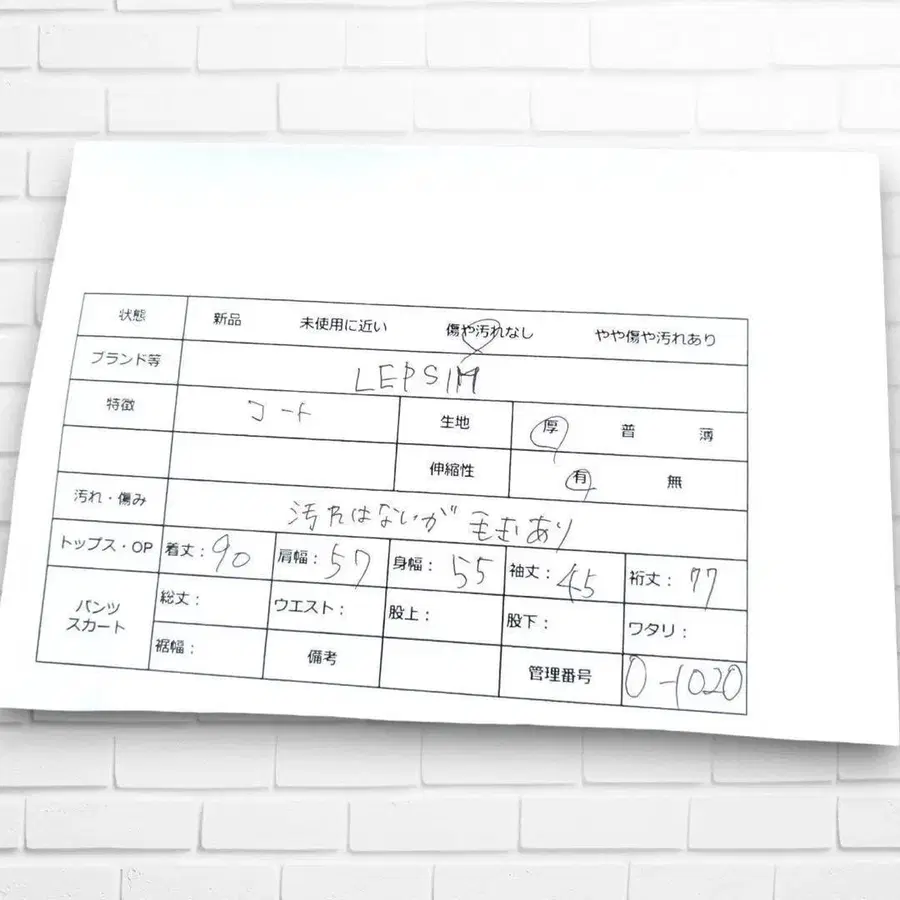 状態 新品 未使用に近い 傷や汚れなし やや傷や汚れあり
ブランド等 LEPSIM
特徴 コート 生地 厚 普 薄
伸縮性 有 無
汚れ・傷み 汚れはないが毛玉あり
トップス・OP 着丈：90 肩幅：57 身幅：55 袖丈：45 裄丈：77
パンツ スカート 総丈： ウエスト： 股上： 股下： ワタリ：
裾幅： 備考 管理番号 0-1020